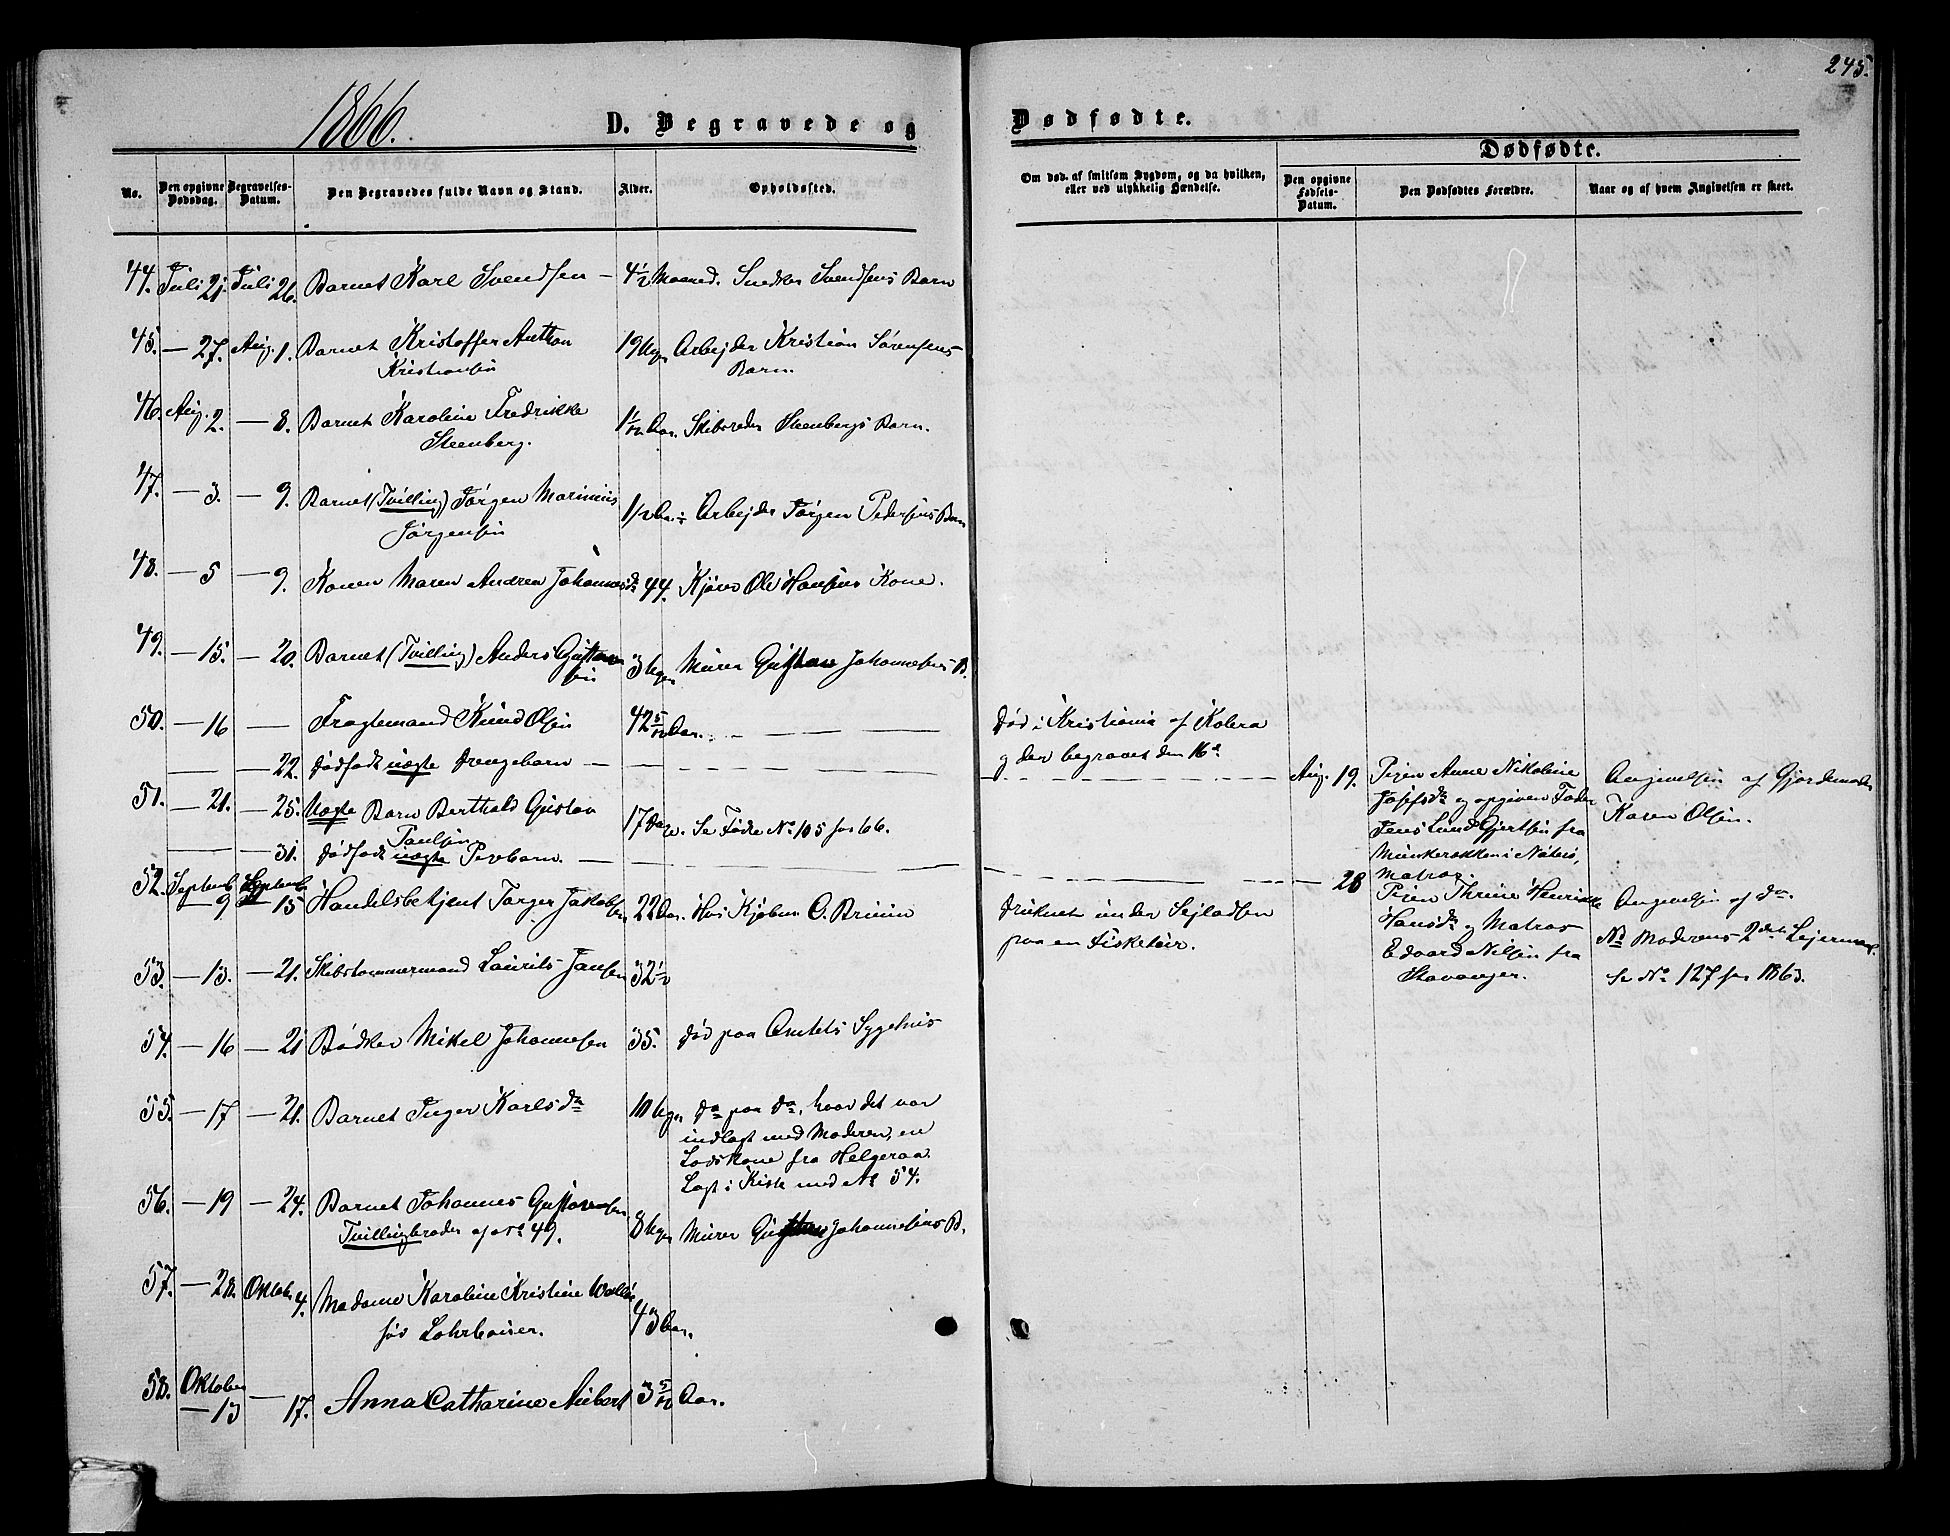 245.
1866.
D. Begravede og
Dødfødte.
Dødfødte.
No.
Den opgivne Dødsdag.
Begravelses-Datum.
Den Begravedes fulde Navn og Stand.
Alder.
Opholdssted.
Om død af smitsom Sygdom, og da hvilken, eller ved ulykkelig Hændelse.
Den opgivne Fødsels-Datum.
Den Dødfødtes Forældre.
Naar og af hvem Angivelsen er skeet.
44. Juli 21. Juli 26. Barnet Karl Svendsen — 4½ Maaned. Snedker Svendsens Barn
45. — 27. Aug. 1. Barnet Kristoffer Anthon 19 Uger Arbejder Kristian Sørensens
Kristiansen Barn.
46. Aug. 2. — 8. Barnet Karoline Fredrikke 1/12 Aar. Skibsreder Steenbergs Barn.
Steenberg.
47. — 3. — 9. Barnet (Tvilling) Jørgen Marinius 1/2 Aar Arbejder Jørgen Pedersens Barn
Jørgensen
48. — 5 — 9. Konen Maren Andrea Johannesdr 44. Kjører Ole Hansens Kone.
49. — 15. — 20. Barnet (Tvilling) Anders Gustav 3 Uger Murer Gustav Johannesens B.
sen
50. — 16 — Fragtemand Knud Olsen 42 5/12 Aar. — — — Død i Kristiania af Kolera
og der begravet den 16de
— — 22. Dødfødt uægte Drengebarn — — — Aug. 19. Pigen Anne Nikoline Angivelsen af Gjordemoder
Josefsdr og opgiven Fader Karen Olsen.
Jens Lund Gjertsen fra
Munkerekken i Nøterø,
Matros.
51. — 21. — 25. Uægte Barn Berthold Gustav 17 Dage. Se Fødte No 105 for 66.
Paulsen
— — 31. Dødfødt uægte Pigebarn. — — — 28 Pigen Thrine Henrikke Angivelsen af do.
Hansdr og Matros NB Moderens 2det Lejermaal
Edvard Nilsen fra Se No 127 for 1863.
Stavanger.
52. Septemb. 9 Septemb. 15 Handelsbetjent Torger Jakobsen 22 Aar. Hos Kjøbm. O. Bruun Druknet under Sejladsen
paa en Fisketour.
53. — 13. — 21. Skibstømmermand Laurits Jansen 32½
54. — 16 — 21 Bødker Mikel Johannesen 35. Død paa Amtets Sygehus
55. — 17 — 21. Barnet Inger Karlsdr 10 Uger do paa do, hvor det var
indlagt med Moderen, en
Loskone fra Helgeraa.
Lagt i Kiste med No 54.
56. — 19 — 24. Barnet Johannes Gustavsen 8 Uger Murer Gustav Johannesens B.
Tvillingbroder af No 49.
57. — 28. Oktob. 4. Madame Karoline Kristine 43 Aar.
fød Lohrbauer.
58. Oktober 13 — 17. Anna Catharine Aubert 3 5/12 Aar.